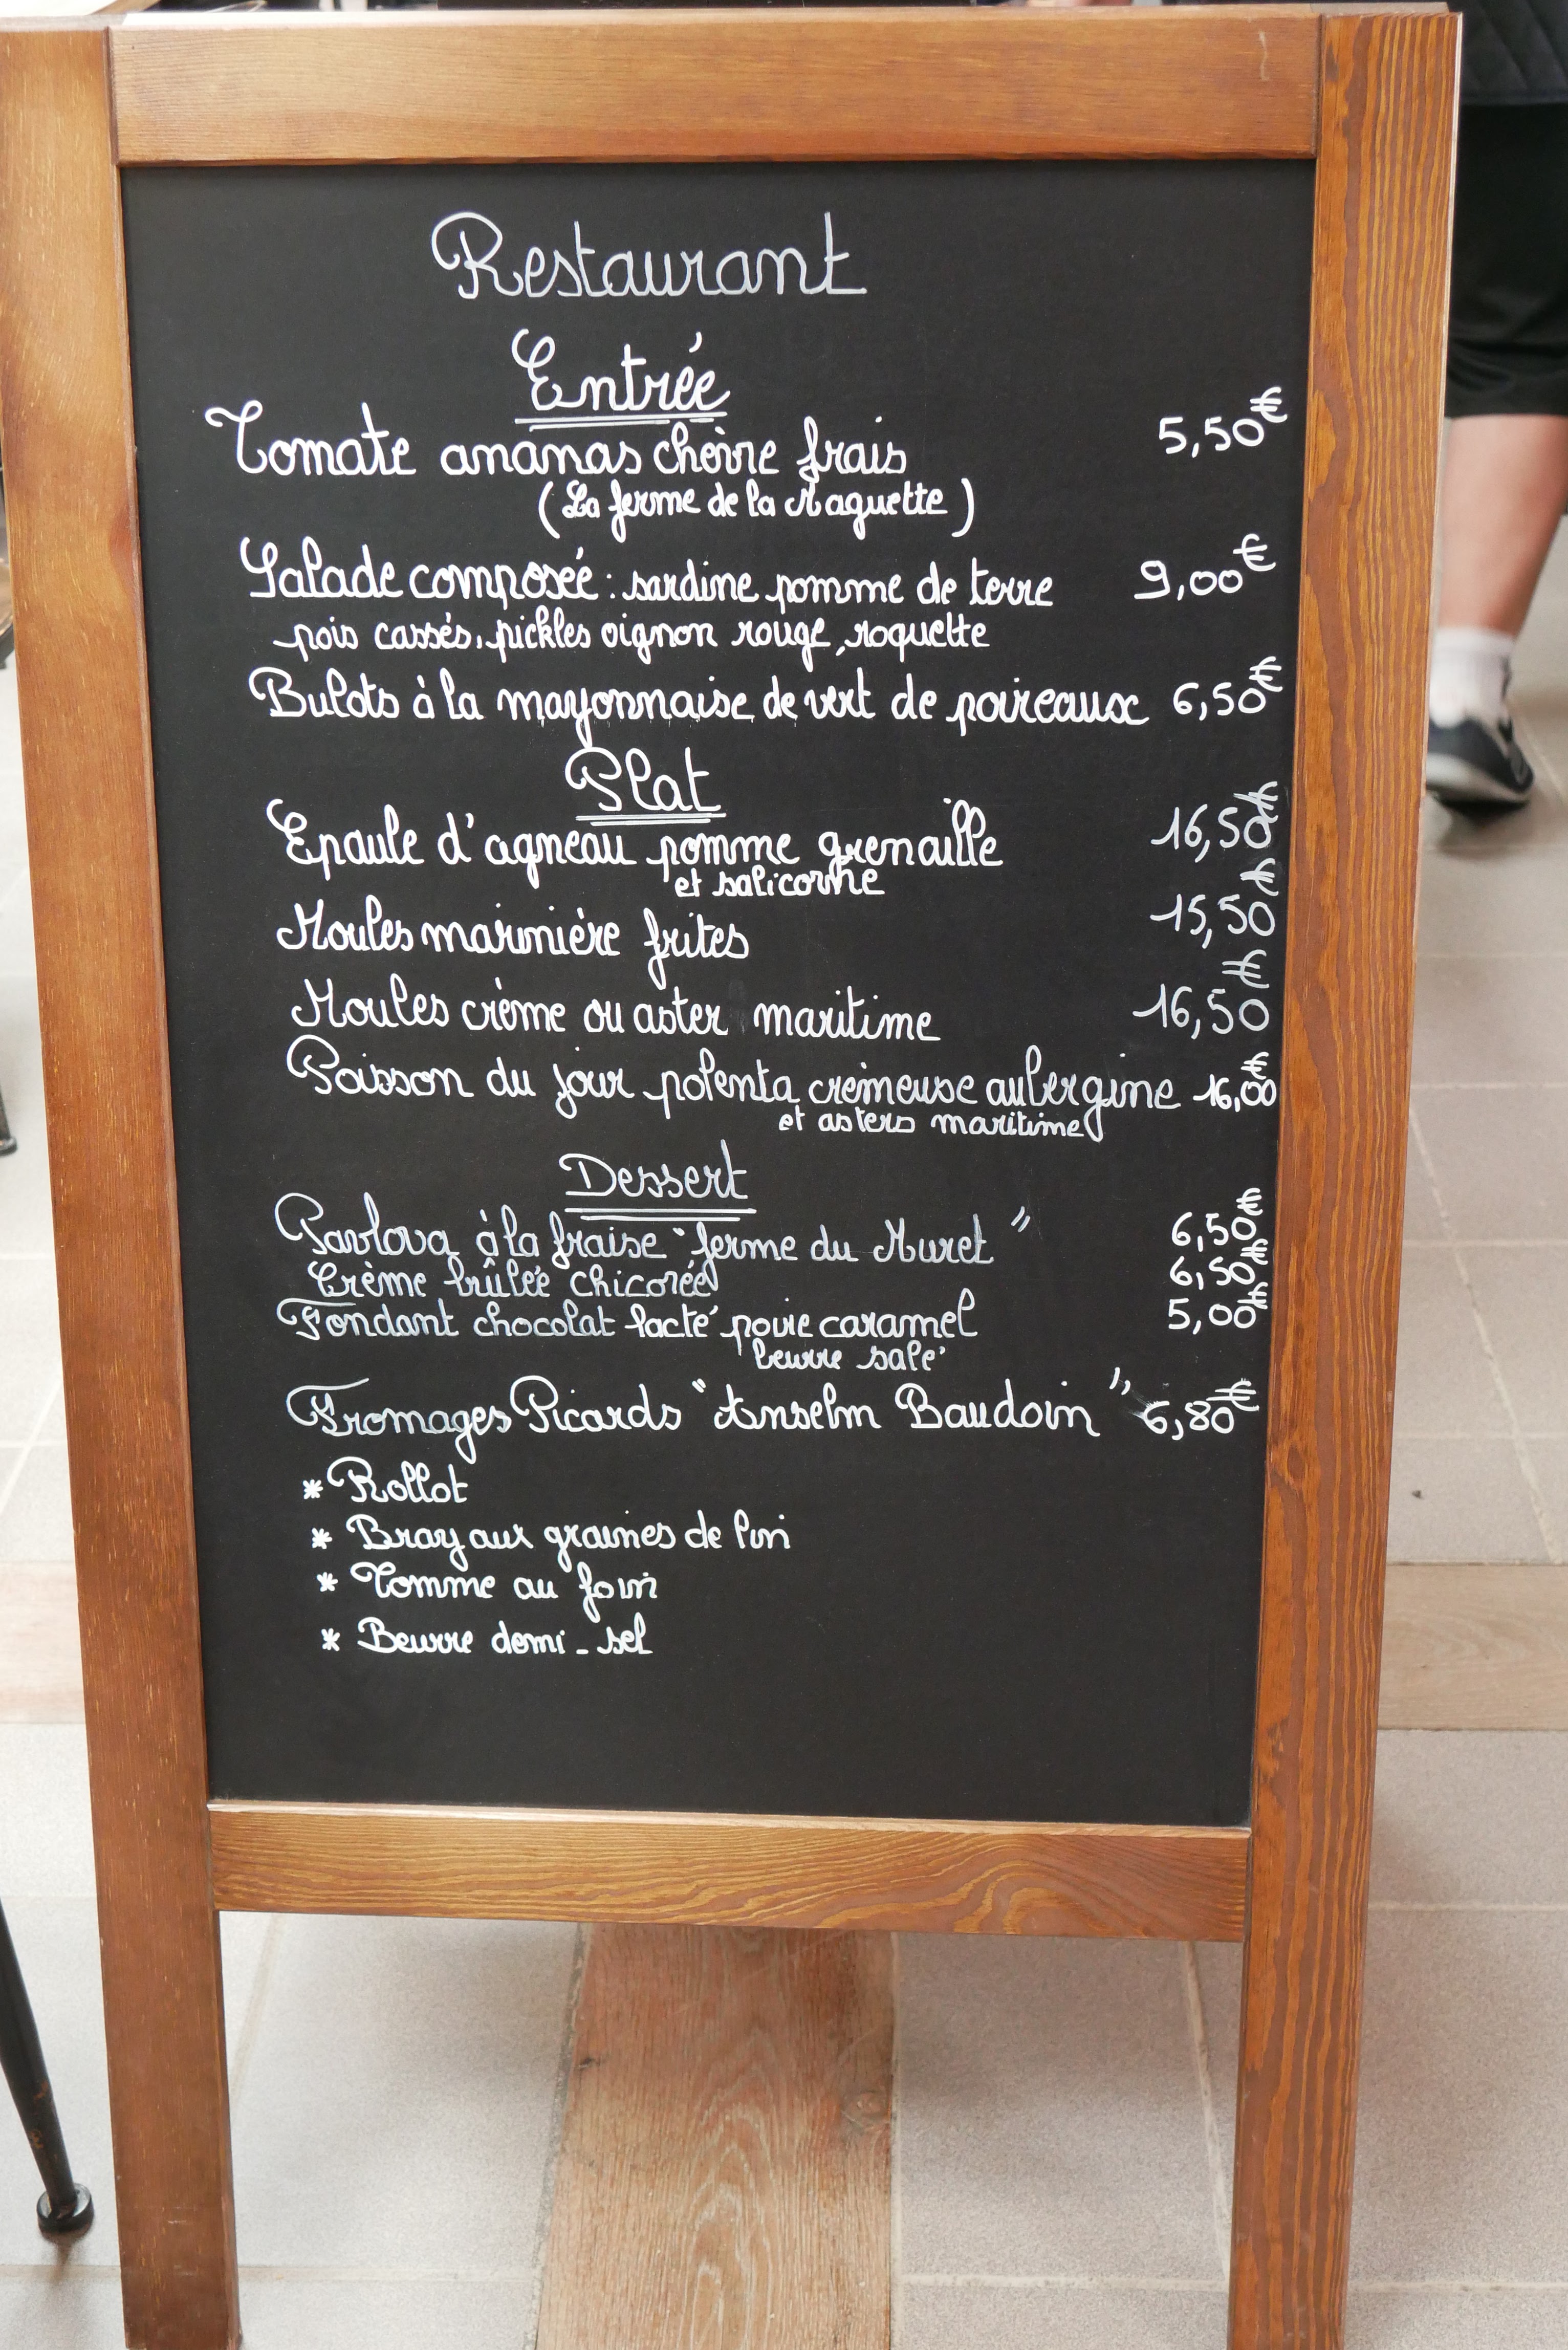 Restaurant
Entrée
Tomate ananas chèvre frais 5,50€
(La ferme de la Maquette)
Salade composée : sardine pomme de terre 9,00€
pois cassés, pickles oignon rouge, roquette
Bulots à la mayonnaise de vert de poireaux 6,50€
Plat
Epaule d'agneau pomme grenaille 16,50€
et salicorne
Moules marinière frites 15,50€
Moules crème ou aster maritime 16,50€
Poisson du jour polenta crèmeuse aubergine 16,00€
et asters maritime
Dessert
Pavlova à la fraise "ferme du Muret" 6,50€
Crème brûlée chicorée 6,50€
Fondant chocolat lacté poire caramel 5,00€
beurre salé
Fromages Picards "Anselm Baudoin" 6,80€
* Rollot
* Bray aux graines de lin
* Tomme au foin
* Beurre demi-sel